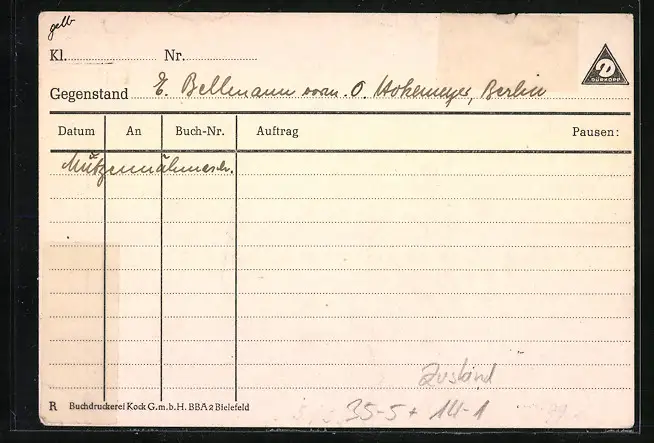 gelb
Kl. Nr.
DÜRKOPP
Gegenstand E. Bellmann vorm. O. Hokemeyer, Berlin
Datum An Buch-Nr. Auftrag Pausen:
Mützennähmasch.
Zustand
R Buchdruckerei Kock G.m.b.H. BBA 2 Bielefeld
35-5+ 14-1